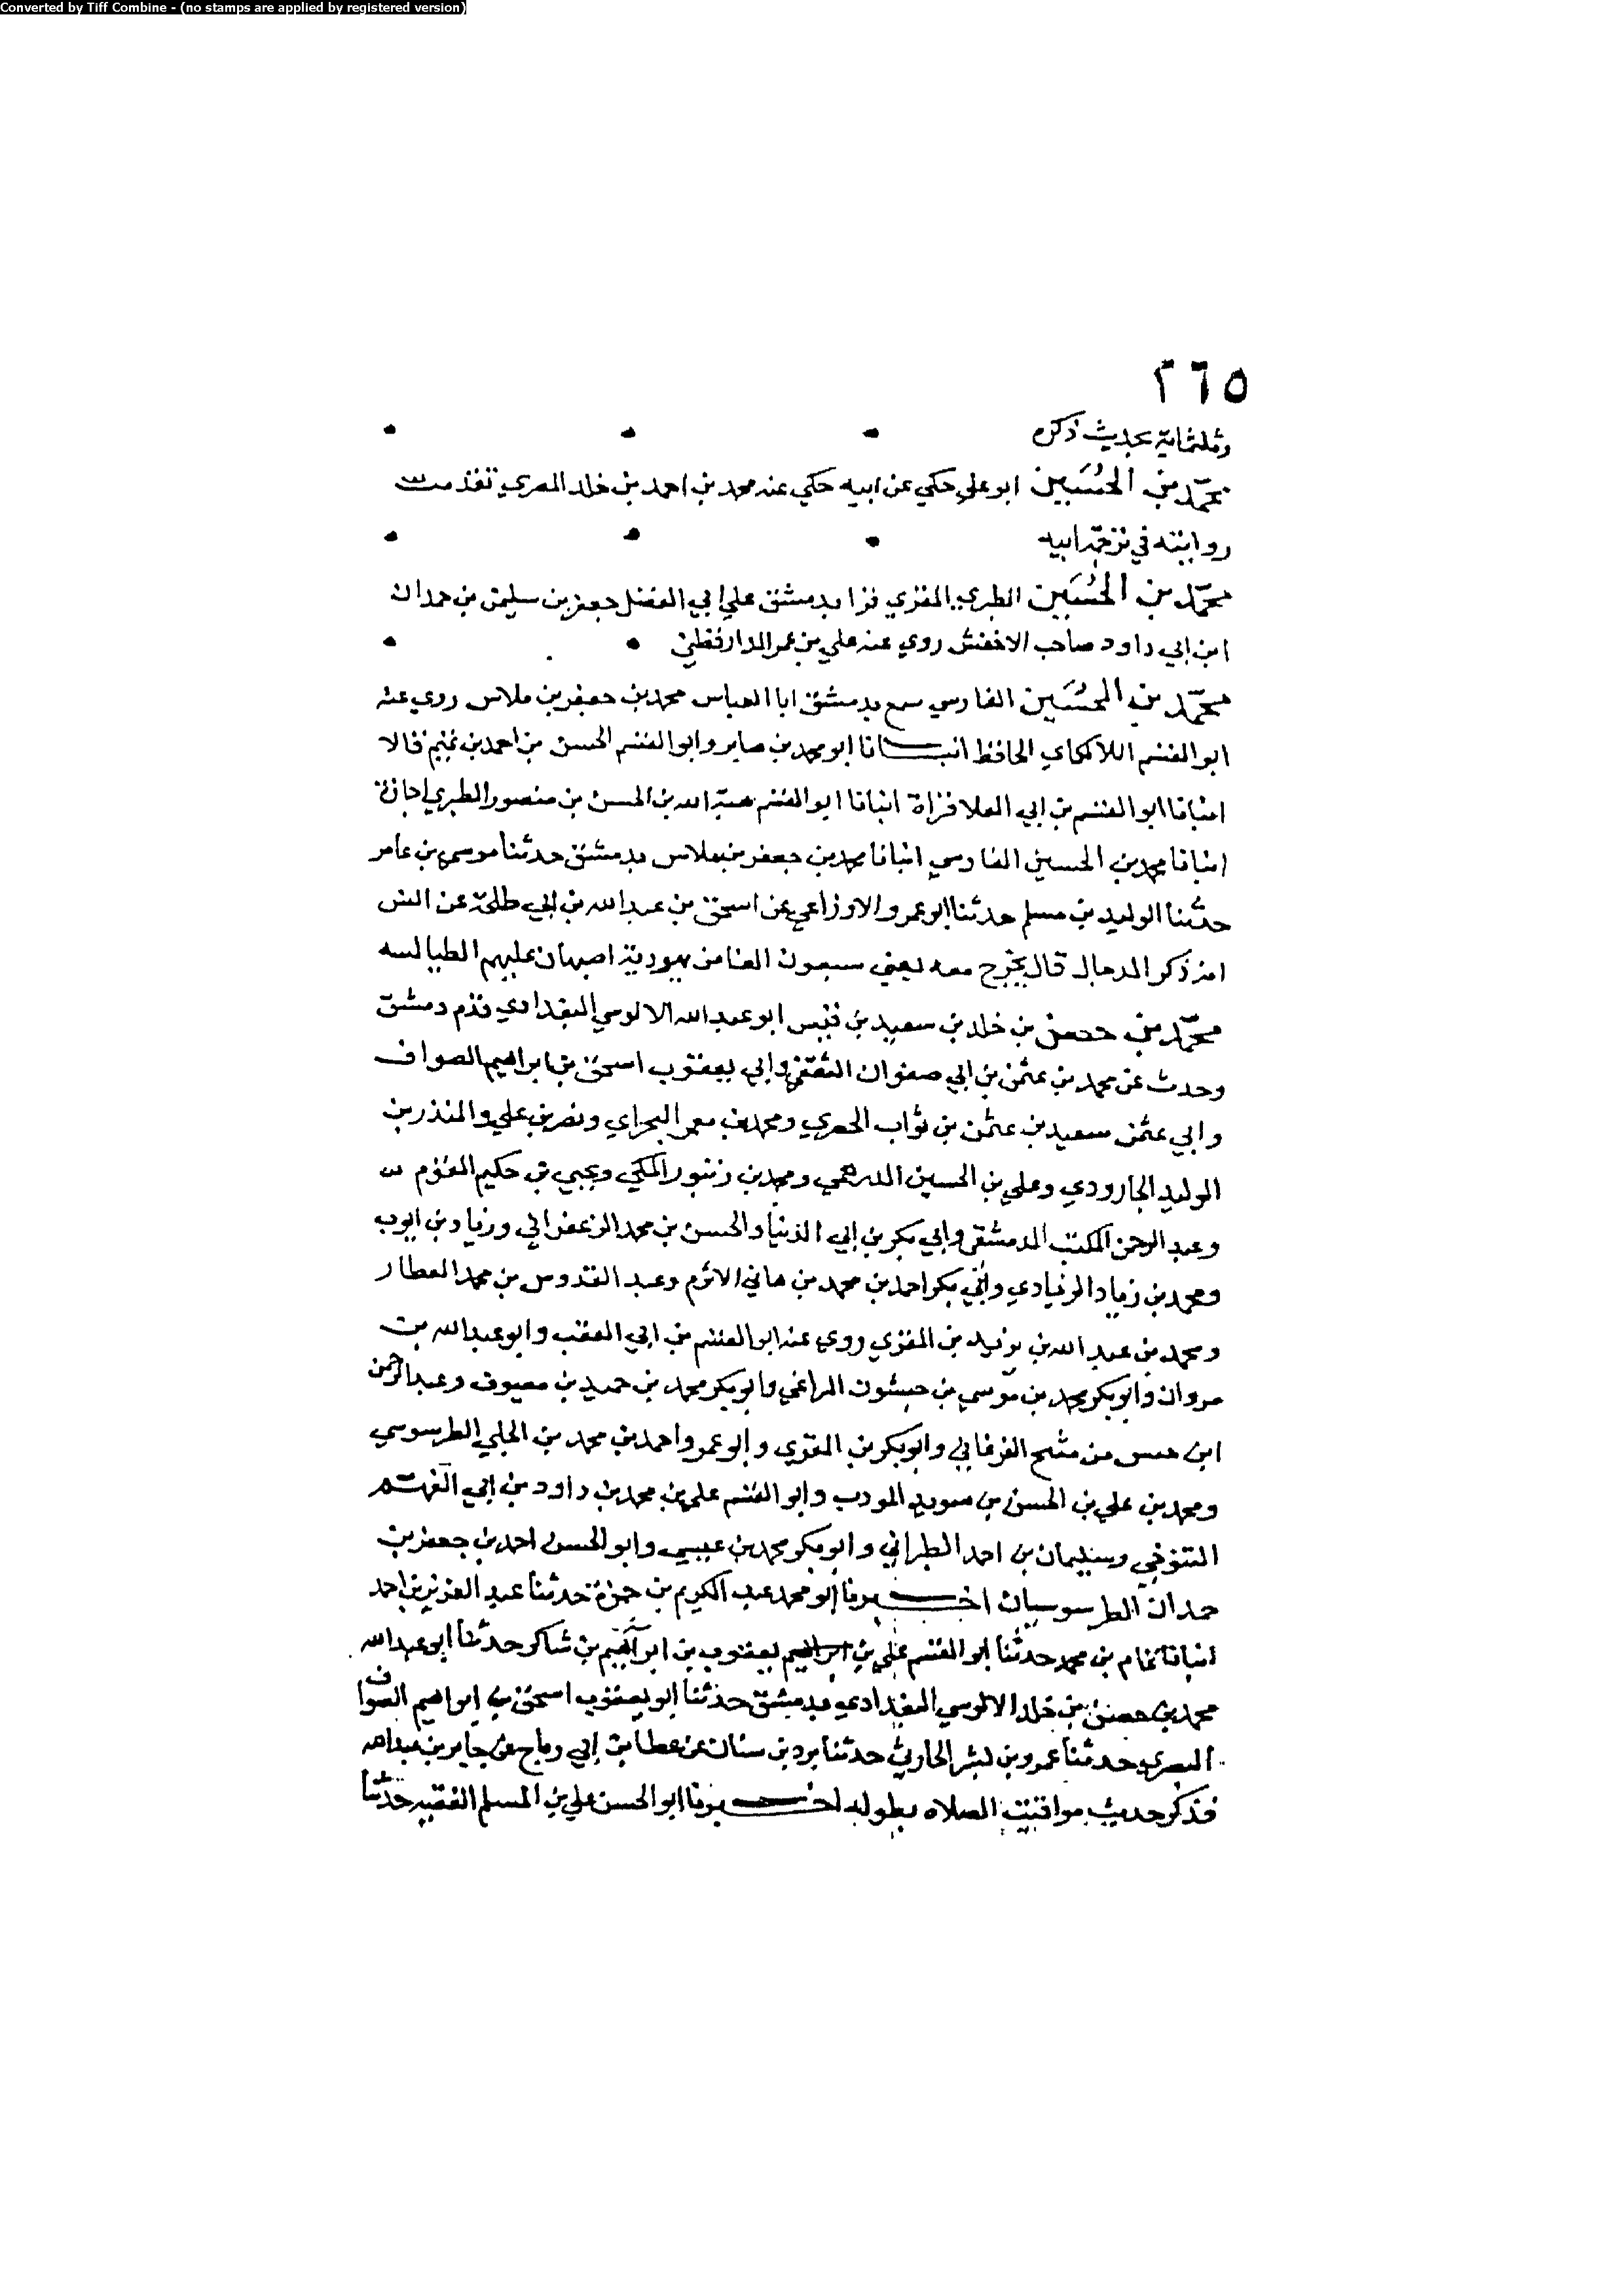 Converted by Tiff Combine - (no stamps are applied by registered version)
٢٦٥
وثلثمائة بحديث ذكره
محمد بن الحسين ابو علي حكي عن ابيه حكي عنه محمد بن احمد بن خلد المصري تقدمت
روايته في ترجمة ابيه
محمد بن الحسين الطبري المقري قرا بدمشق علي ابي الفضل جعفر بن سليمن بن حمدان
ابن ابي داود صاحب الاخفش روي عنه علي بن عمر الدارقطني
محمد بن الحسين الفارسي سمع بدمشق ابا العباس محمد بن جعفر بن ملاس روي عنه
ابو القسم اللالكاي الحافظ انبانا ابو محمد بن صابر وابو القسم الحسن بن احمد بن تميم قالا
انبانا ابو القسم بن ابي العلا قراة انبانا ابو القسم هبة الله بن الحسن بن منصور الطبري اجازة
انبانا محمد بن الحسين الفارسي انبانا محمد بن جعفر بن ملاس بدمشق حدثنا موسي بن عامر
حدثنا الوليد بن مسلم حدثنا ابو عمرو الاوزاعي عن اسحق بن عبد الله بن ابي طلحة عن انس
انه ذكر الدجال قال يخرج معه يعني سبعون الفا من يهودية اصبهان عليهم الطيالسه
محمد بن حصن بن خلد بن سعيد بن قيس ابو عبد الله الالوسي البغدادي قدم دمشق
وحدث عن محمد بن عثمن بن ابي صفوان الثقفي وابي يعقوب اسحق بن ابراهيم الصواف
وابي عثمن سعيد بن عثمن بن ثواب الحصري ومحمد بن معمر البحراي ونصر بن علي والمنذر بن
الوليد الجارودي وعلي بن الحسين الدرهمي ومحمد بن زنبور المكي ويحيي بن حكيم المقوم
وعبد الرحمن المكتب الدمشقي وابي بكر بن ابي الدنيا والحسن بن محمد الزعفراني وزياد بن ايوب
ومحمد بن زياد الزيادي وابي بكر احمد بن محمد بن هاني الاثرم وعبد القدوس بن محمد العطار
ومحمد بن عبد الله بن يزيد بن المقري روي عنه ابو القسم بن ابي العقب وابو عبد الله بن
مروان وابو بكر محمد بن موسي بن حبشون المراغي وابو بكر محمد بن حميد بن معيوف وعبد الرحمن
ابن الفرغاني وابو بكر بن المقري وابو عمرو احمد بن محمد بن الجلي الطرسوسي
ومحمد بن علي بن الحسن بن سويد المودب وابو القسم علي بن محمد بن داود بن ابي الفهم
التنوخي وسليمان بن احمد الطبراني وابو بكر محمد بن عيسي وابو الحسن احمد بن جعفر بن
حمدان الطرسوسيان اخبرنا ابو محمد عبد الكريم بن حمزة حدثنا عبد العزيز بن احمد
انبانا تمام بن محمد حدثنا ابو القسم علي بن يعقوب بن ابراهيم بن شاكر حدثنا ابو عبد الله
محمد بن حصن بن خلد الالوسي البغدادي بدمشق حدثنا ابو يعقوب اسحق بن ابراهيم الصواف
البصري حدثنا عمرو بن بشر الحارثي حدثنا برد بن سنان عن عطا بن ابي رباح عن جابر بن عبد الله
فذكر حديث مواقيت الصلاه بطوله اخبرنا ابو الحسن علي بن المسلم الفقيه حدثنا